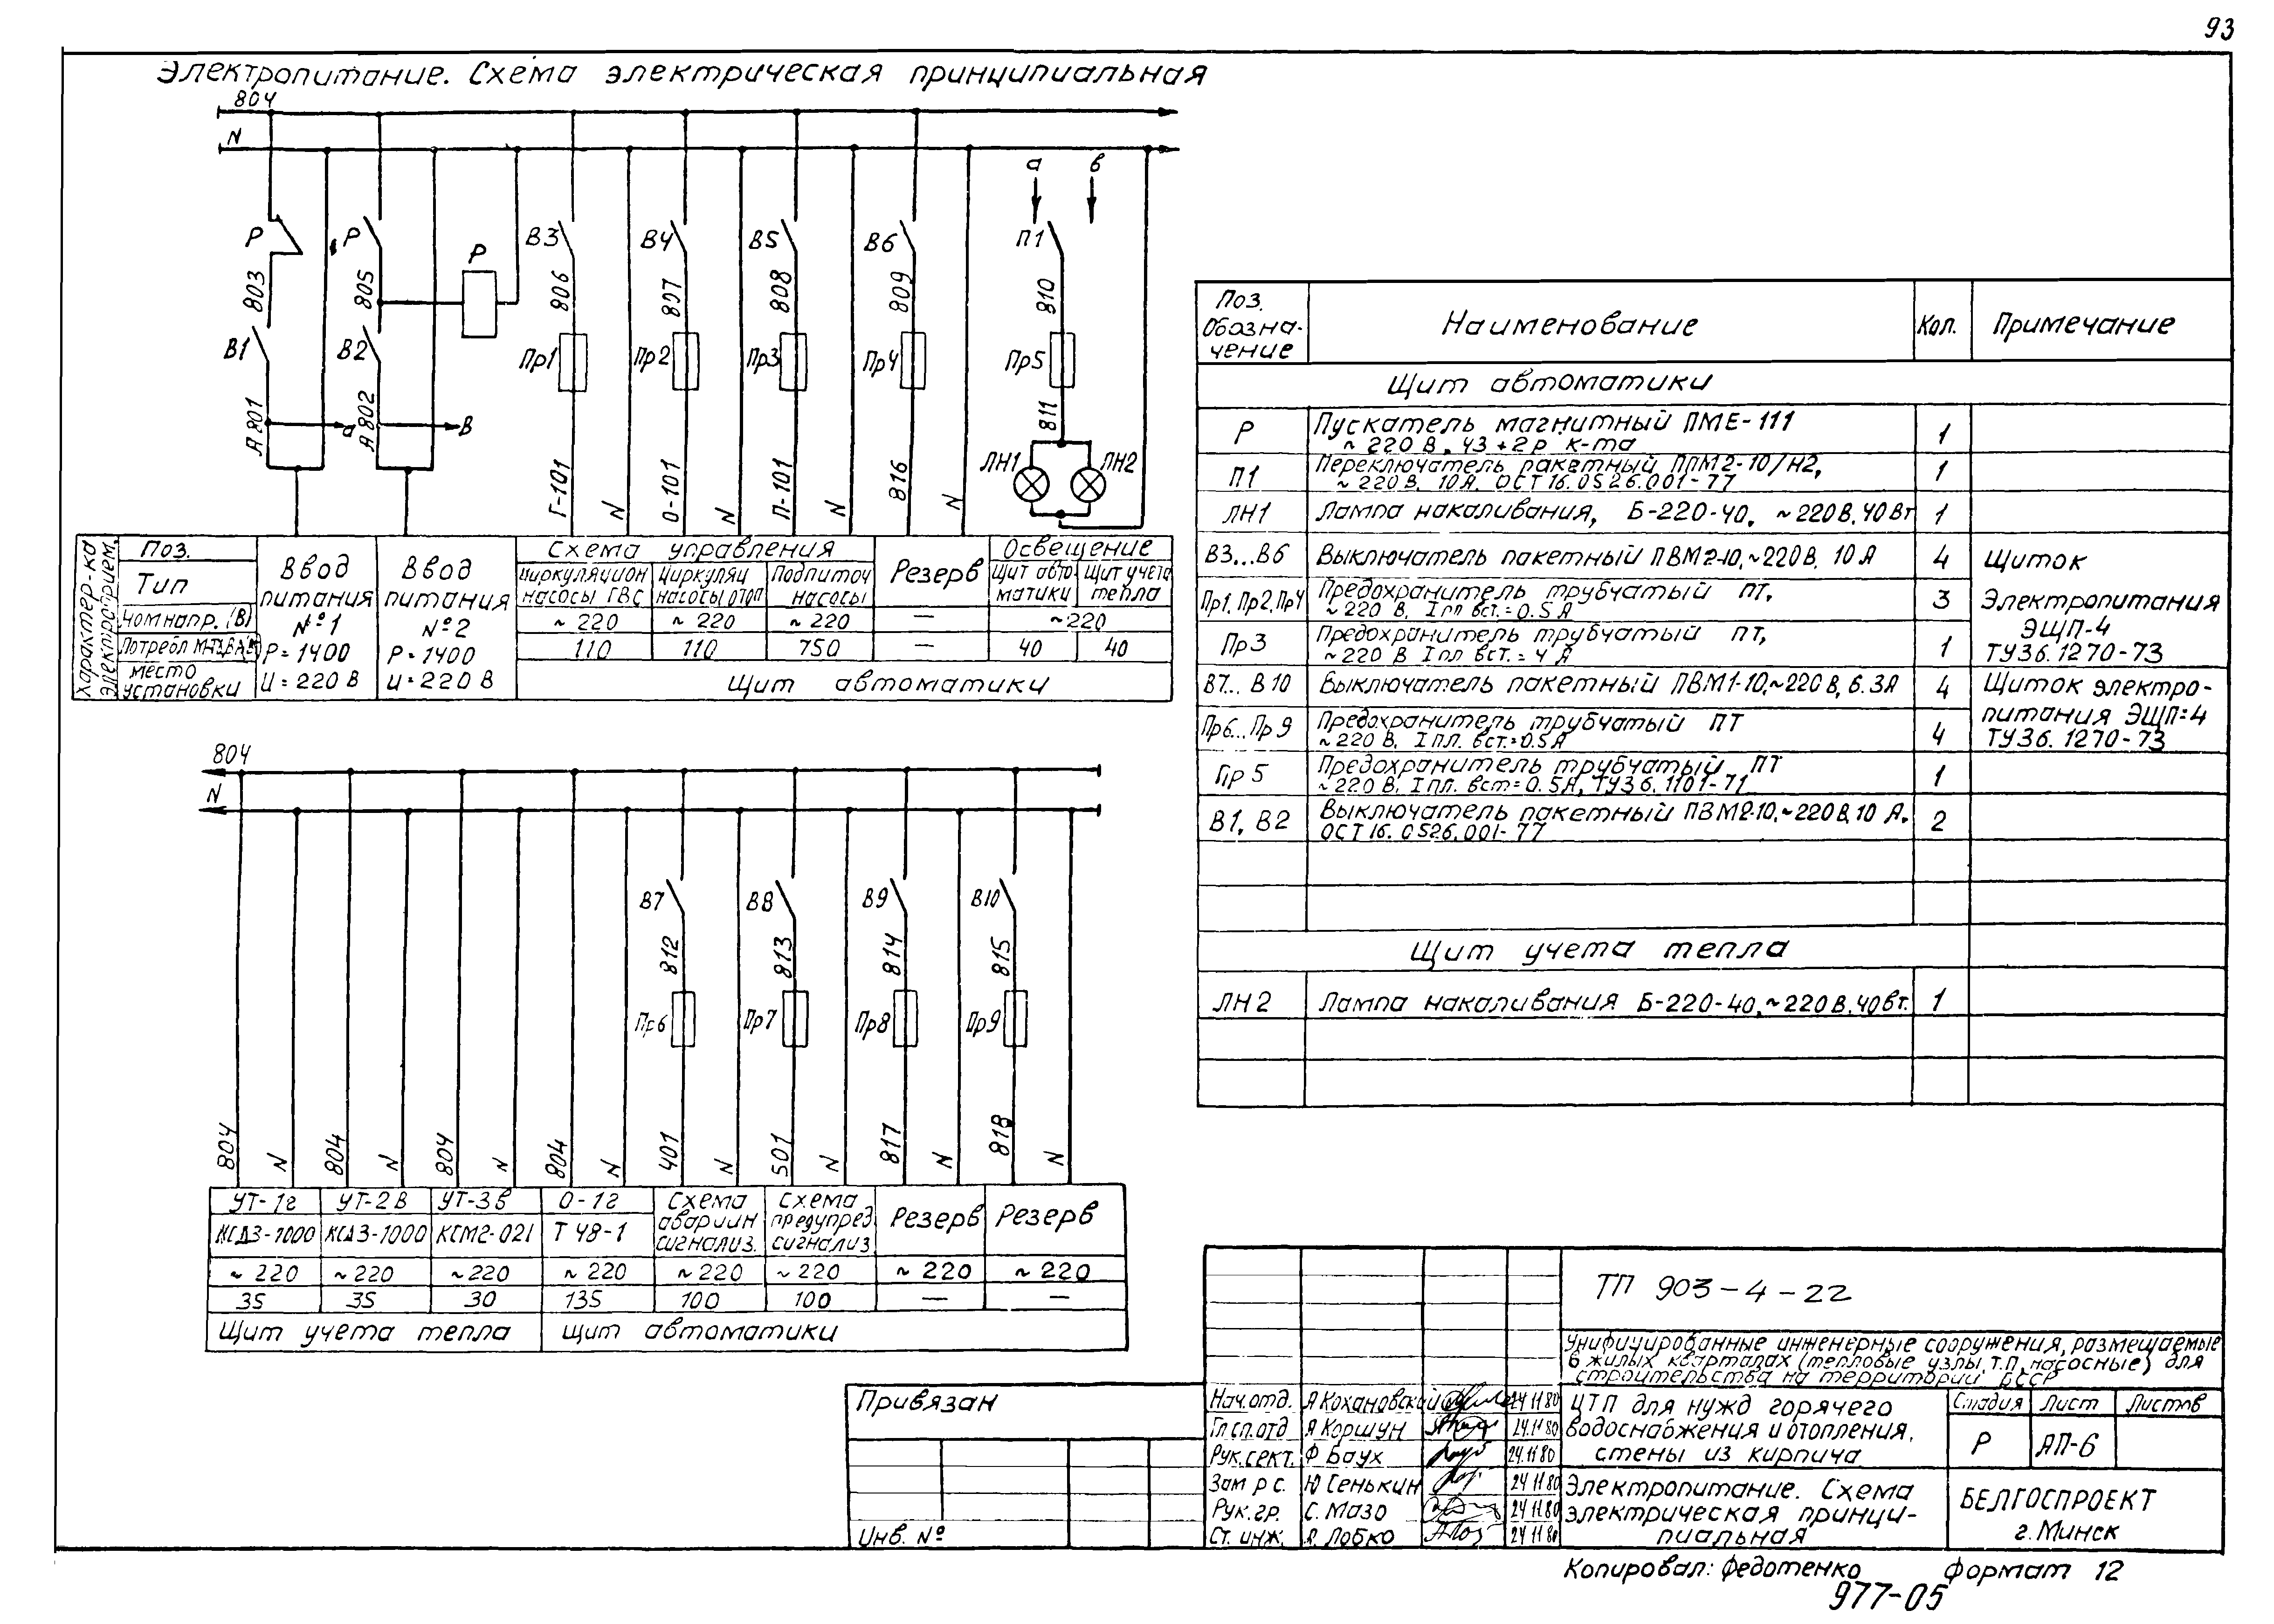 93
Электропитание. Схема электрическая принципиальная
804
N
а в
Р Р Р В3 В4 В5 В6 П1
803 805 806 807 808 809 810
В1 В2 Пр1 Пр2 Пр3 Пр4 Пр5
А801 а А802 в 811
ЛН1 ЛН2
Г-101 N О-101 N П-101 N 816 N
Характер-ка электроприем.
Поз.
Тип
Ном напр. (В)
место установки
Ввод питания №1 Р=1400 U=220В
Ввод питания №2 Р=1400 U=220В
Схема управления
Циркуляцион насосы ГВС
Циркуляц насосы отоп
Подпиточ насосы
Резерв
Освещение
Щит авто- матики
Щит учета тепла
~220 ~220 ~220 — ~220
110 110 750 — 40 40
Щит автоматики
804
N
В7 В8 В9 В10
812 813 814 815
Пр6 Пр7 Пр8 Пр9
804 N 804 N 804 N 804 N 401 N 501 N 817 N 818 N
УТ-1г УТ-2в УТ-3в О-1г
КСД3-1000 КСД3-1000 КСМ2-021 Т 48-1
Схема аварийн сигнализ.
Схема предупред сигнализ
Резерв Резерв
~220 ~220 ~220 ~220 ~220 ~220 ~220 ~220
35 35 30 135 100 100 — —
Щит учета тепла Щит автоматики
Поз. Обозна- чение Наименование Кол. Примечание
Щит автоматики
Р Пускатель магнитный ПМЕ-111 1
~220 В, 4з+2р к-та
П1 Переключатель пакетный ППМ2-10/Н2, 1
~220В, 10А. ОСТ16.0526.001-77
ЛН1 Лампа накаливания, Б-220-40, ~220В, 40Вт 1
В3...В6 Выключатель пакетный ПВМ2-10, ~220В, 10А 4 Щиток
Пр1, Пр2, Пр4 Предохранитель трубчатый ПТ, 3 Электропитания
~220 В, I пл вст.=0.5А ЭЩП-4
Пр3 Предохранитель трубчатый ПТ, 1 ТУ36.1270-73
~220 В I пл вст.=4А
В7...В10 Выключатель пакетный ПВМ1-10, ~220В, 6.3А 4 Щиток электро-
Пр6...Пр9 Предохранитель трубчатый ПТ 4 питания ЭЩП-4
~220 В, I пл. вст.=0.5А ТУ36.1270-73
Пр5 Предохранитель трубчатый ПТ 1
~220 В, I пл. вст=0.5А, ТУ36.1101-71
В1, В2 Выключатель пакетный ПВМ2-10, ~220В, 10А, 2
ОСТ16.0526.001-77
Щит учета тепла
ЛН2 Лампа накаливания Б-220-40, ~220В, 40Вт. 1
ТП 903-4-22
Унифицированные инженерные сооружения, размещаемые
в жилых кварталах (тепловые узлы, т.п, насосные) для
строительства на территории БССР
Привязан
Инв. №
Нач. отд. Я Кохановский 24 11 80
Гл сп. отд Я Коршун 24.11 80
Рук. сект. Ф Баух 24.11 80
Зам р с. Ю Сенькин 24 11 80
Рук. гр. С. Мазо 24 11 80
Ст. инж. Я. Лобко 24 11 80
ЦТП для нужд горячего
водоснабжения и отопления,
стены из кирпича
Стадия Лист Листов
Р АП-6
Электропитание. Схема
электрическая принци-
пиальная
БЕЛГОСПРОЕКТ
г. Минск
Копировал: Федотенко Формат 12
977-05